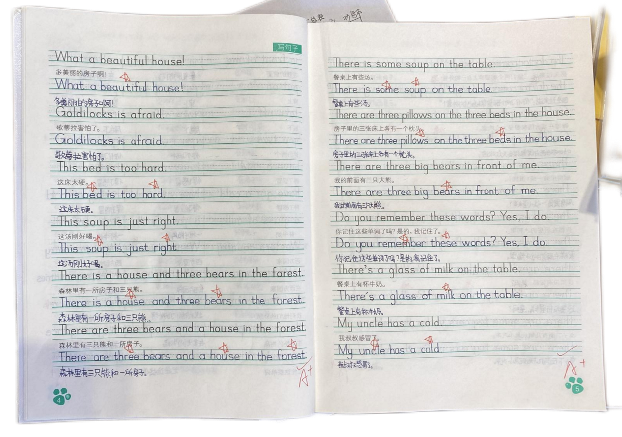 写句子
What a beautiful house!
多美丽的房子啊!
What a beautiful house!
多美丽的房子啊!
Goldilocks is afraid.
歌蒂拉害怕了。
Goldilocks is afraid.
歌蒂拉害怕了。
This bed is too hard.
这床太硬。
This bed is too hard.
这床太硬。
This soup is just right.
这汤刚好喝。
This soup is just right.
这汤刚好喝。
There is a house and three bears in the forest.
森林里有一所房子和三只熊。
There is a house and three bears in the forest.
森林里有一所房子和三只熊。
There are three bears and a house in the forest.
森林里有三只熊和一所房子。
There are three bears and a house in the forest.
森林里有三只熊和一所房子。
A+
4
There is some soup on the table.
餐桌上有些汤。
There is some soup on the table.
餐桌上有些汤。
There are three pillows on the three beds in the house.
房子里的三张床上各有一个枕头。
There are three pillows on the three beds in the house.
房子里的三张床上各有一个枕头。
There are three big bears in front of me.
我的前面有三只大熊。
There are three big bears in front of me.
我的前面有三只大熊。
Do you remember these words? Yes, I do.
你记住这些单词了吗? 是的, 我记住了。
Do you remember these words? Yes, I do.
你记住这些单词了吗? 是的我记住了。
There's a glass of milk on the table.
餐桌上有杯牛奶。
There's a glass of milk on the table.
餐桌上有杯牛奶。
My uncle has a cold.
我叔叔感冒了。
My uncle has a cold.
我叔叔感冒了。
A+
5